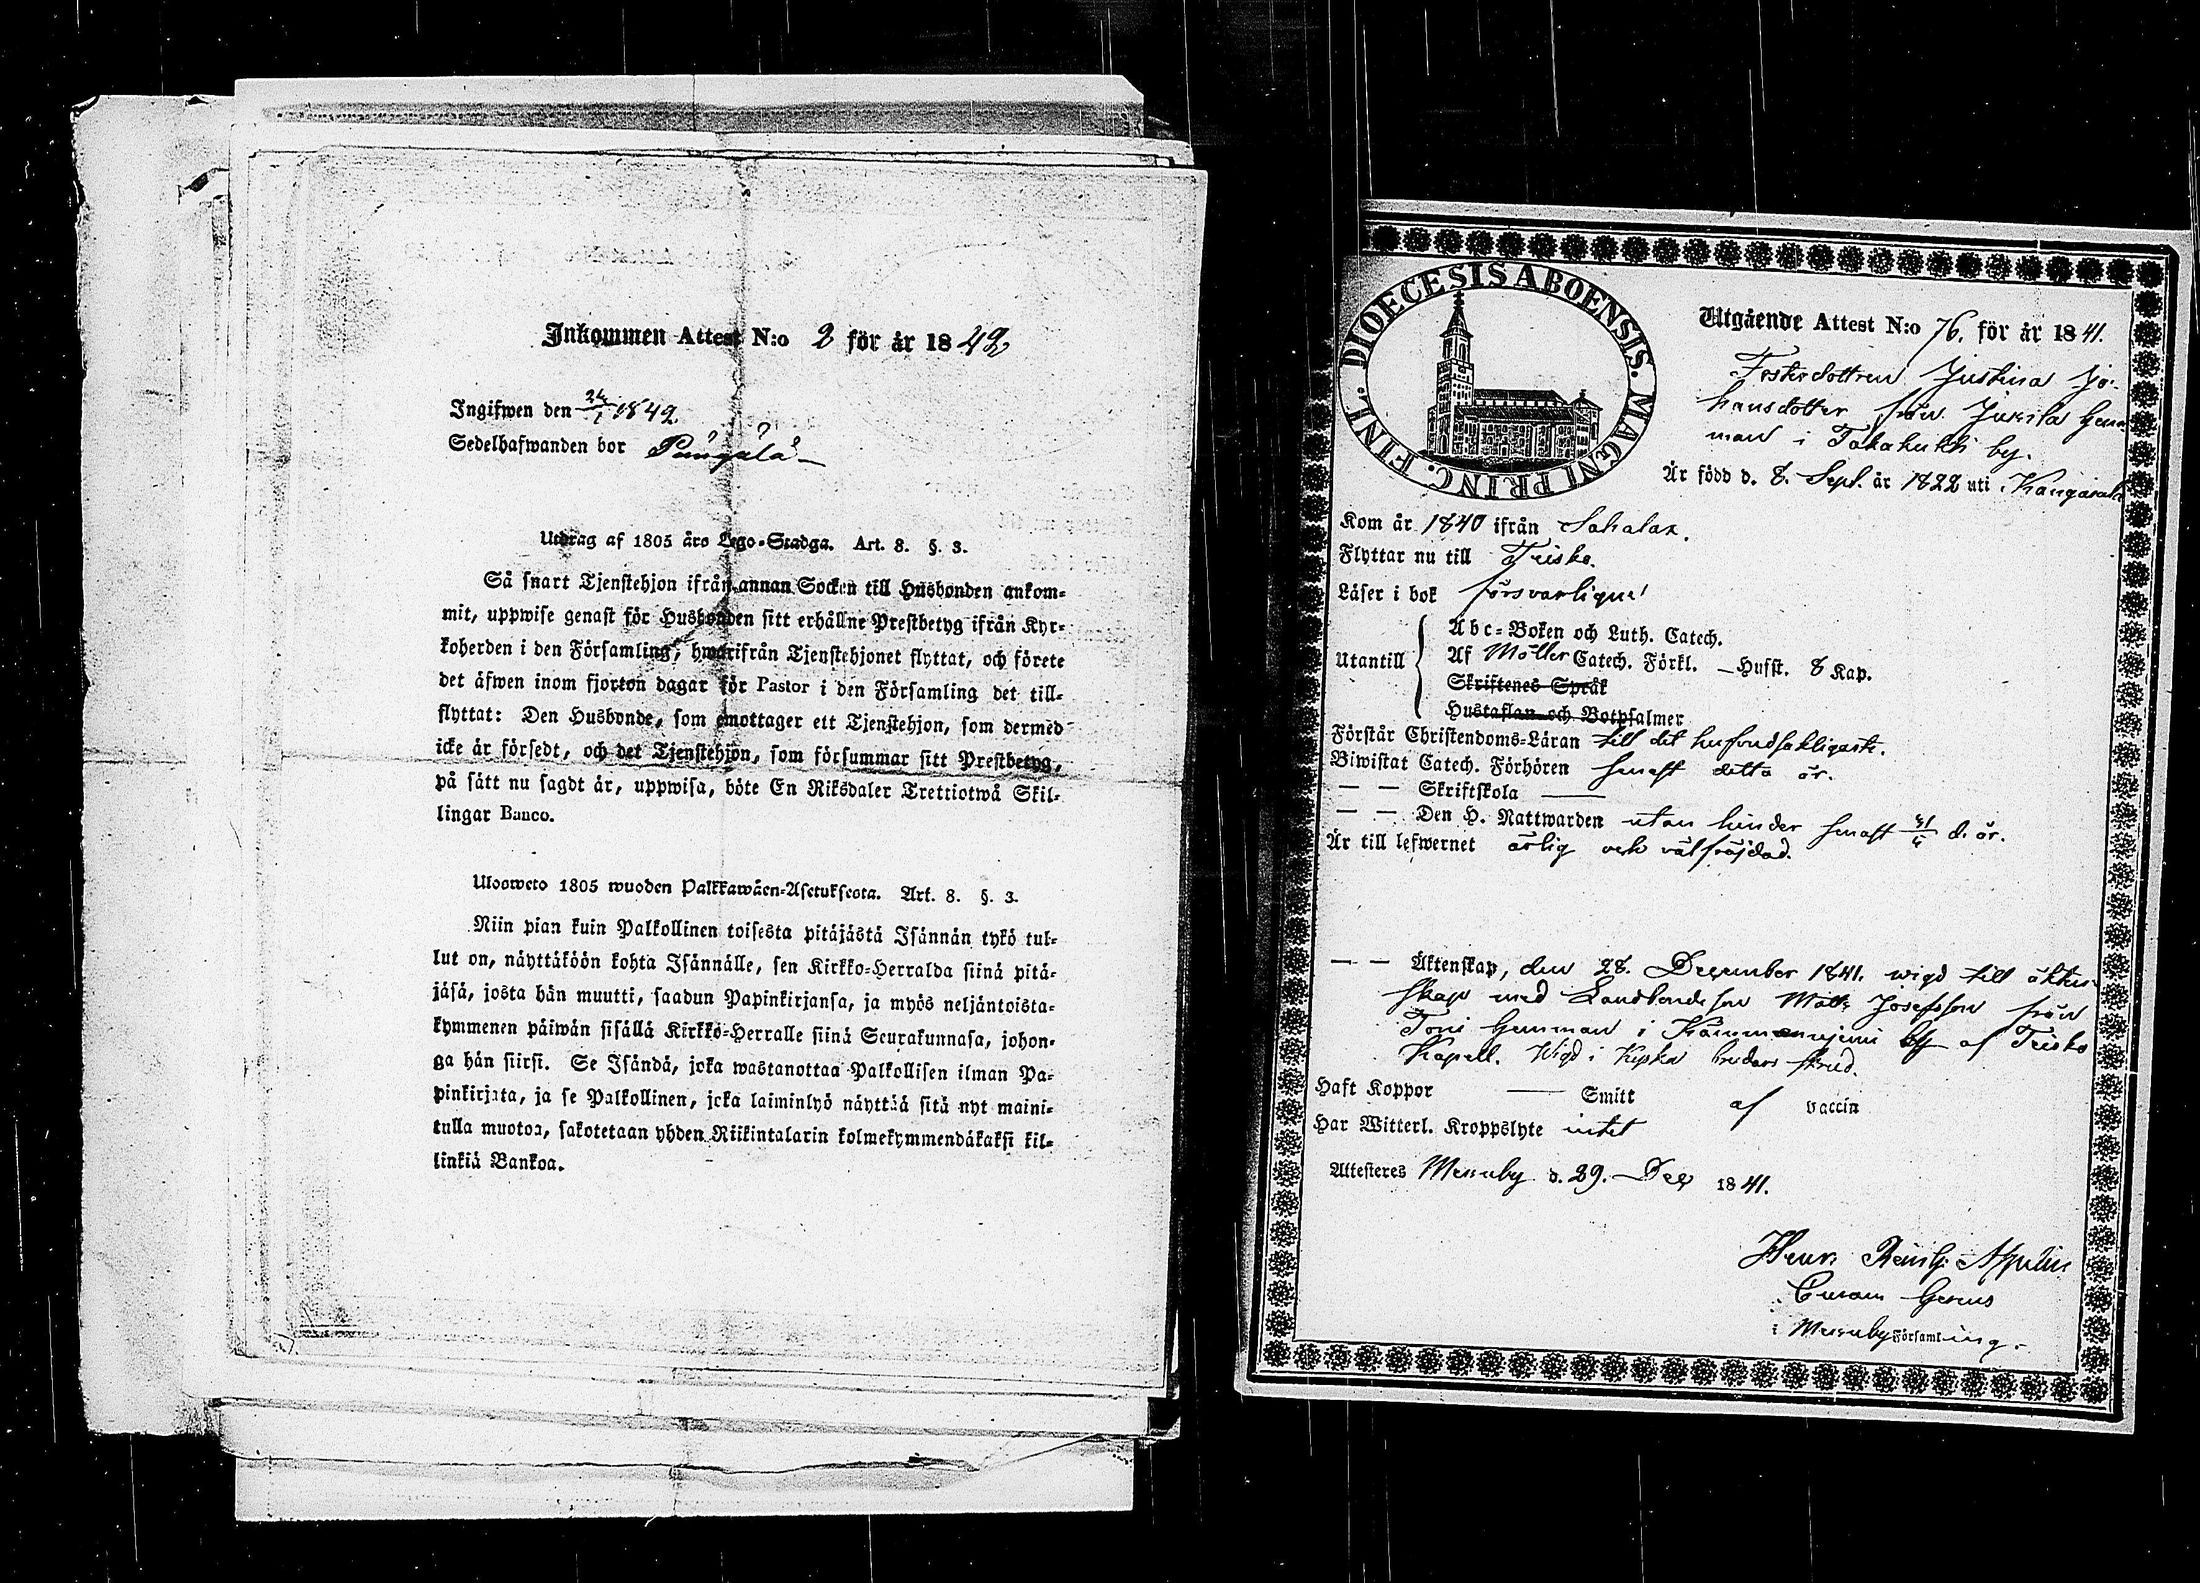 Inkommen Attest N:o 2 för år 1842
Ingifwen den 24/1 1842.
Sedelhafwanden bor
Utdrag af 1805 års Lego-Stadga. Art. 8. §. 3.
Så snart Tjenstehjon ifrån annan Socken till Husbonden ankom-
mit, uppwise genast för Husbonden sitt erhållne Prestbetyg ifrån Kyr-
koherden i den Församling, hwarifrån Tjenstehjonet flyttat, och förete
det äfwen inom fjorton dagar för Pastor i den Församling det till-
flyttat: Den Husbonde, som emottager ett Tjenstehjon, som dermed
icke är försedt, och det Tjenstehjon, som försummar sitt Prestbetyg,
på sätt nu sagdt är, uppwisa, böte En Riksdaler Trettiotwå Skil-
lingar Banco.
Ulosweto 1805 wuoden Palkkawäen-Asetuksesta. Art. 8. §. 3.
Niin pian kuin Palkollinen toisesta pitäjästä Isännän tykö tul-
lut on, näyttäköön kohta Isännälle, sen Kirkko-Herralda siinä pitä-
jäsä, josta hän muutti, saadun Papinkirjansa, ja myös neljäntoista-
kymmenen päiwän sisällä Kirkko-Herralle siinä Seurakunnasa, johon-
ga hän siirsi. Se Isändä, joka wastanottaa Palkollisen ilman Pa-
pinkirjata, ja se Palkollinen, joka laiminlyö näyttää sitä nyt maini-
tulla muotoa, sakotetaan yhden Riikintalarin kolmekymmendäkaksi kil-
linkiä Bankoa.
DIOECESIS ABOENSIS. MAGNI PRINC. FINL.
Utgående Attest N:o 76. för år 1841.
Fosterdottren Justina Jo-
hansdotter från Jussila hem-
man i Takahuhti by.
Är född d. 8. Sept. år 1822 uti Kangasala
Kom år 1840 ifrån Sahalax.
Flyttar nu till Teisko.
Läser i bok försvarligen
Utantill
Abc-Boken och Luth. Catech.
Af Möller Catech. Förkl. — Husst. 8 Kap.
Skriftenes Språk
Hustaflan och Botpsalmer
Förstår Christendoms-Läran till det hufvudsakligaste.
Biwistat Catech. Förhören senast detta år.
— — Skriftskola —
— — Den H. Nattwarden utan hinder senast d. år.
Är till lefwernet ärlig och välfräjdad.
— — Äktenskap, den 28. December 1841. wigd till äkten-
skap med Landbondeson Matts Josefsson från
Toni hemman i Kämmenniemi by af Teisko
Kapell. Wigd i Kyrka brudars skrud.
Haft Koppor — Smitt af vaccin
Har Witterl. Kroppslyte intet
Attesteres Messuby d. 29. Dec 1841.
Henr. Reinh.
Curam Gerens
i Messuby Församling.